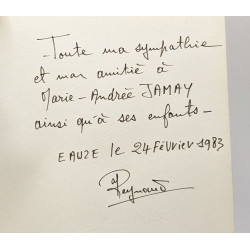 Toute ma sympathie
et mon amitié à
Marie-Andrée JAMAY
ainsi qu'à ses enfants-
EAUZE le 24 FÉVRIER 1983